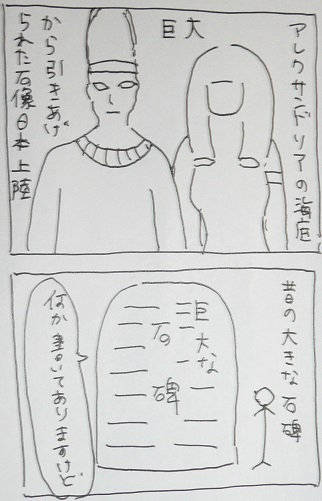 アレクサンドリアの海底
巨大
から引きあげ
られた石像日本上陸
昔の大きな石碑
巨大な
石碑
何か書いてありますけど